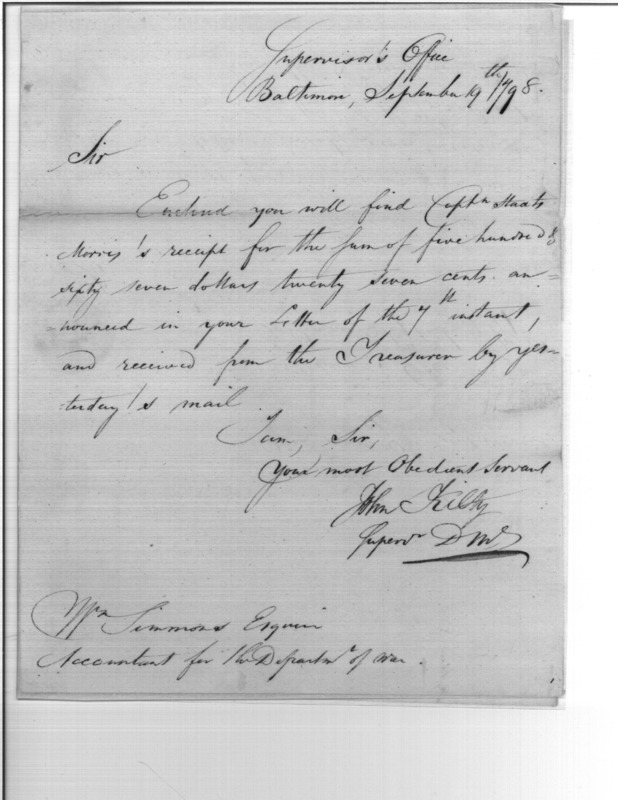 Supervisor's Office
Baltimore, September 19th 1798.
Sir
Enclosed you will find Captn Staats
Morris's receipt for the Sum of five hundred &
sixty seven dollars twenty seven cents. an=
=nounced in your Letter of the 7th instant,
and received from the Treasurer by yes=
=terday's mail.
I am, Sir,
Your most Obedient Servant
John Kilty
Supervr D Md
Wm Simmons Esquire
Accountant for the Departmt of War.